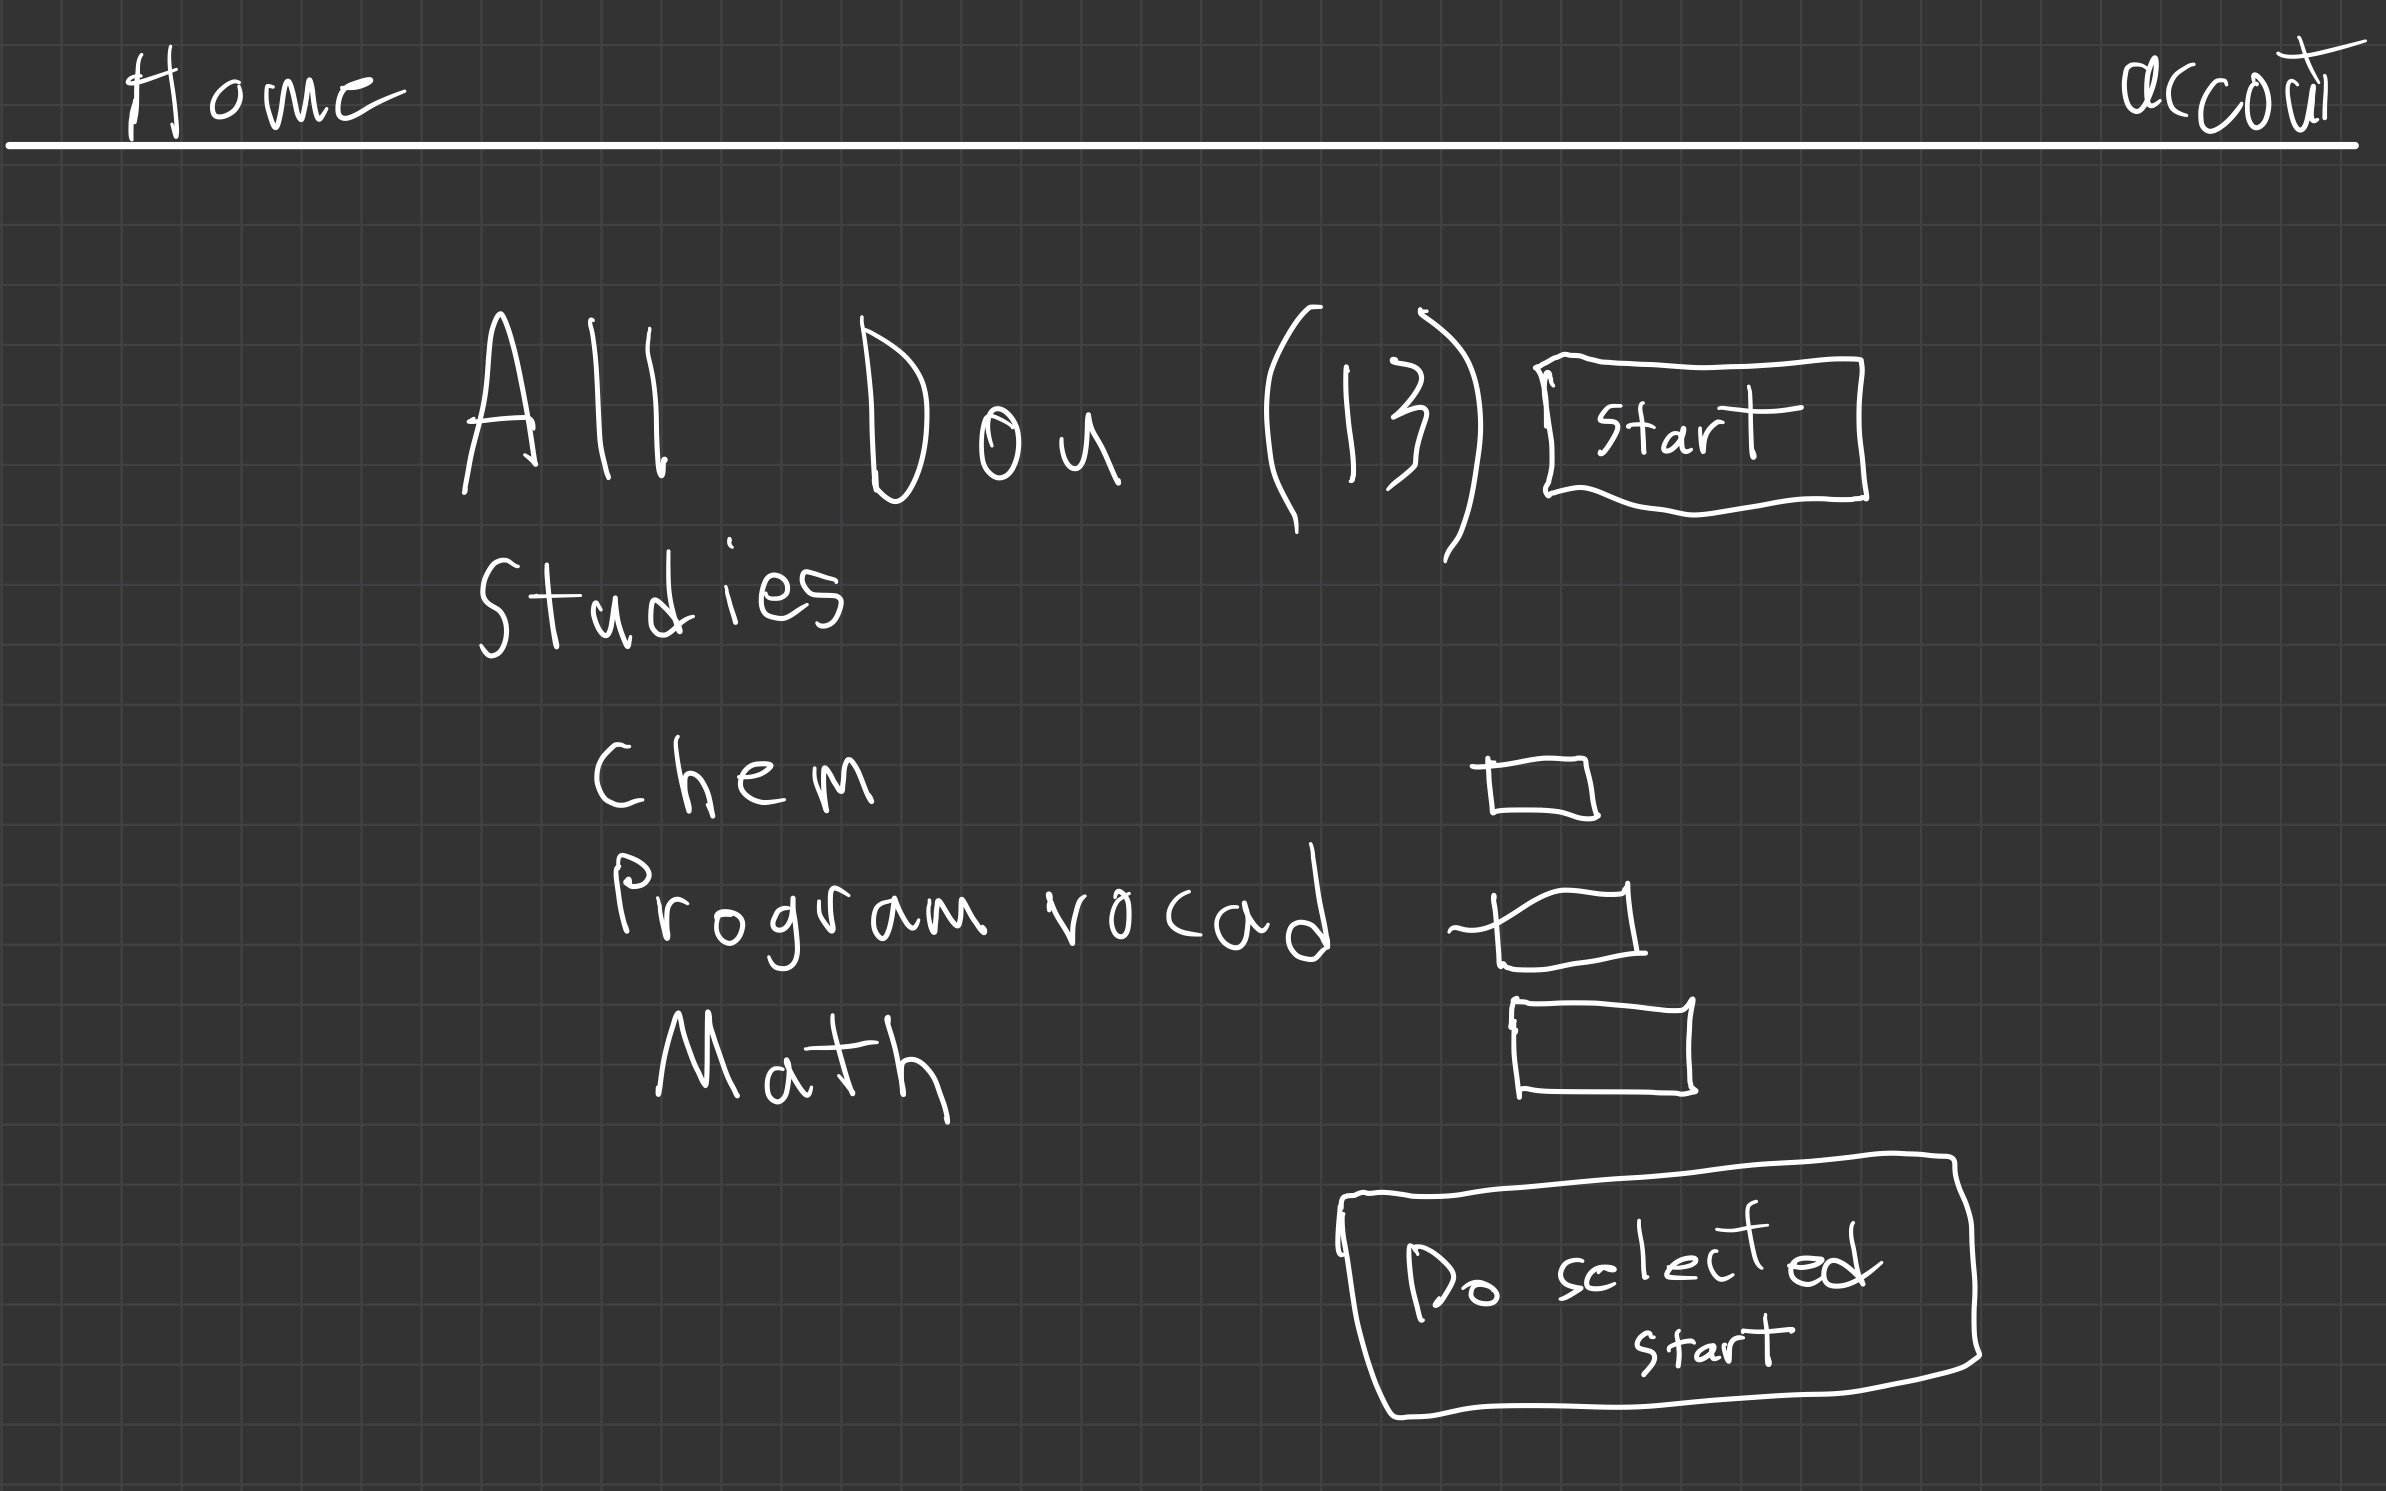 Home
accout
All Dou (13) start
Studies
Chem
Program vocad
Math
Do selected
start